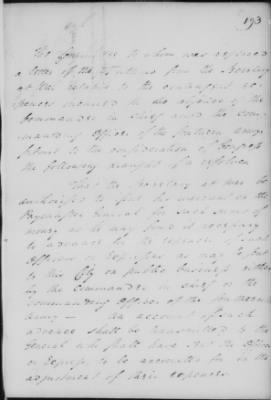 193
The Committee to whom was referred
a letter of the from the Secretary
at War relative to the contingent ex
pences incurred in the
Commander in chief and the com
manding officer of the Southern army
submit to the consideration of Congress
the following draught of a resolution
That the Secretary at war be
authorized to his warrant on the
Paymaster General for such sums of
money as he may find it necessary
to advance for the expences such
Officers or Expresses as may be sent
to this City on public business either
by the Commander in chief or the
Commanding Officer of the Southern
army — An account of such
advance shall be transmitted to the
General who shall have sent the Officer
or Express, to be accounted for in the
adjustment of their expences